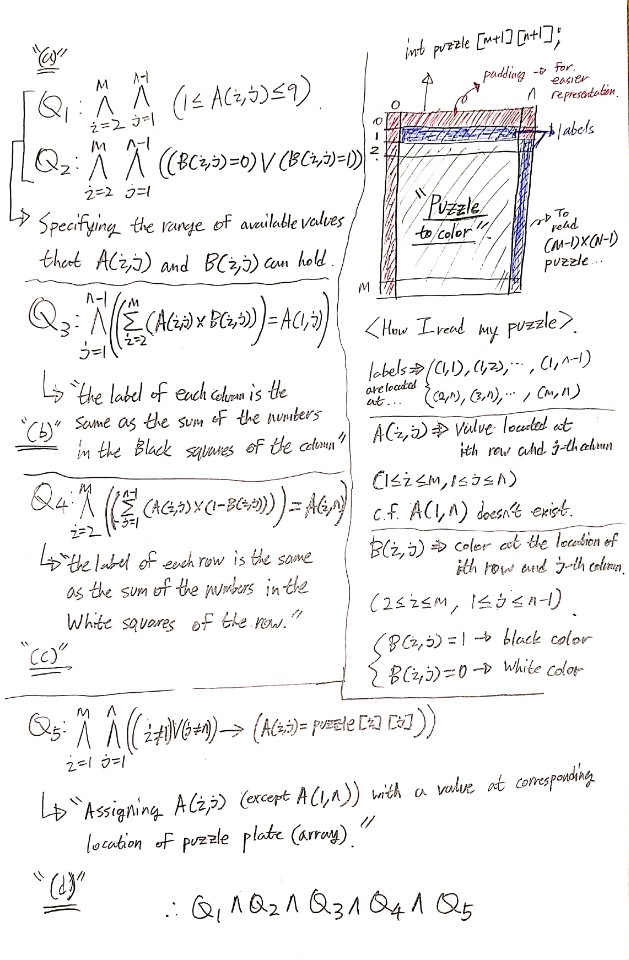 "(a)"
Q₁: ⋀_{i=2}^{M} ⋀_{j=1}^{n-1} (1 ≤ A(i,j) ≤ 9)
Q₂: ⋀_{i=2}^{M} ⋀_{j=1}^{n-1} ((B(i,j)=0) ∨ (B(i,j)=1))
↳ Specifying the range of available values
that A(i,j) and B(i,j) can hold.
Q₃: ⋀_{j=1}^{n-1} ((∑_{i=2}^{M} (A(i,j) × B(i,j))) = A(1,j))
↳ "the label of each column is the
"(b)" same as the sum of the numbers
in the Black squares of the column"
Q₄: ⋀_{i=2}^{M} ((∑_{j=1}^{n-1} (A(i,j) × (1-B(i,j)))) = A(i,n))
↳ "the label of each row is the same
as the sum of the numbers in the
White squares of the row."
"(c)"
int puzzle [m+1] [n+1];
padding → for
easier
representation.
0
n
0
1
2
M
labels
"Puzzle
to color"
→ To
read
(M-1)×(N-1)
puzzle...
<How I read my puzzle>.
labels ⇒ { (1,1), (1,2), ..., (1,n-1)
are located
at... (2,n), (3,n), ..., (m,n)
A(i,j) ⇒ value located at
ith row and j-th column
(1≤i≤m, 1≤j≤n)
c.f. A(1,n) doesn't exist.
B(i,j) ⇒ color at the location of
ith row and j-th column.
(2≤i≤m, 1≤j≤n-1)
{ B(i,j)=1 → black color
B(i,j)=0 → White color
Q₅: ⋀_{i=1}^{M} ⋀_{j=1}^{n} ((i≠1)∨(j≠n) → (A(i,j) = puzzle [i] [j]))
↳ "Assigning A(i,j) (except A(1,n)) with a value at corresponding
location of puzzle plate (array)."
"(d)"
∴ Q₁ ∧ Q₂ ∧ Q₃ ∧ Q₄ ∧ Q₅